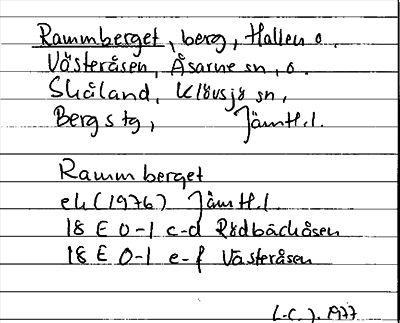 Rammberget, berg, Hallen o.
Västeråsen, Åsarne sn, o.
Skåland, Klövsjö sn,
Bergs tg, Jämtl.l.
Ramm berget
ek (1976) Jämtl.l
18 E 0-1 c-d Rödbäckåsen
18 E 0-1 e-f Västeråsen
1977